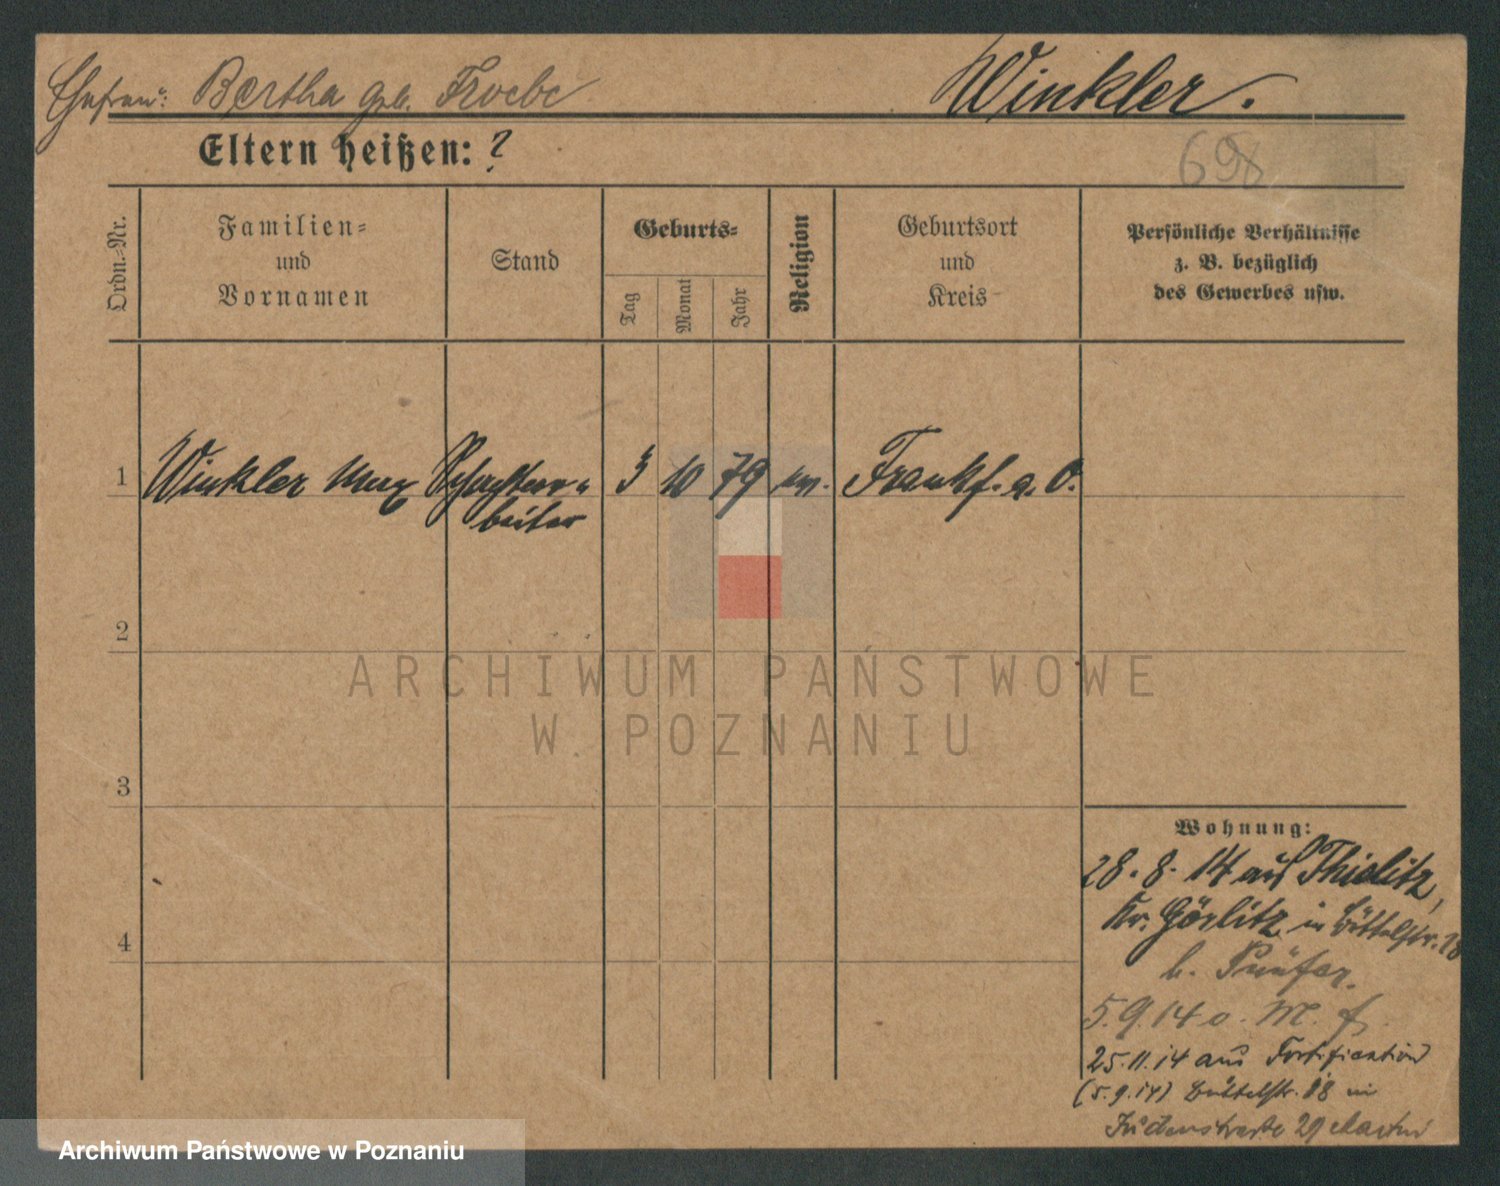 Ehefrau: Bertha geb. Froebe
Winkler.
Eltern heißen: ?
698
Ordn.-Nr.
Familien-
und
Vornamen
Stand
Geburts-
Tag
Monat
Jahr
Religion
Geburtsort
und
Kreis
Persönliche Verhältnisse
z. B. bezüglich
des Gewerbes usw.
1 Winkler Max Schachtar- 3 10 79 ev. Frankf. a. O.
beiter
2
3
4
Wohnung:
28. 8. 14 aus Thielitz,
Kr. Görlitz in Büttelstr. 18
b.
5.9.14 o. M. f.
25.11.14 aus Fortifikation
(5.9.14) Büttelstr. 18 in
Judenstraße 29
ARCHIWUM PAŃSTWOWE
W POZNANIU
Archiwum Państwowe w Poznaniu